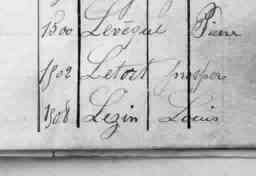 1500 Levêque Pierre
1502 Letort Prospère
1508 Lezin Louis